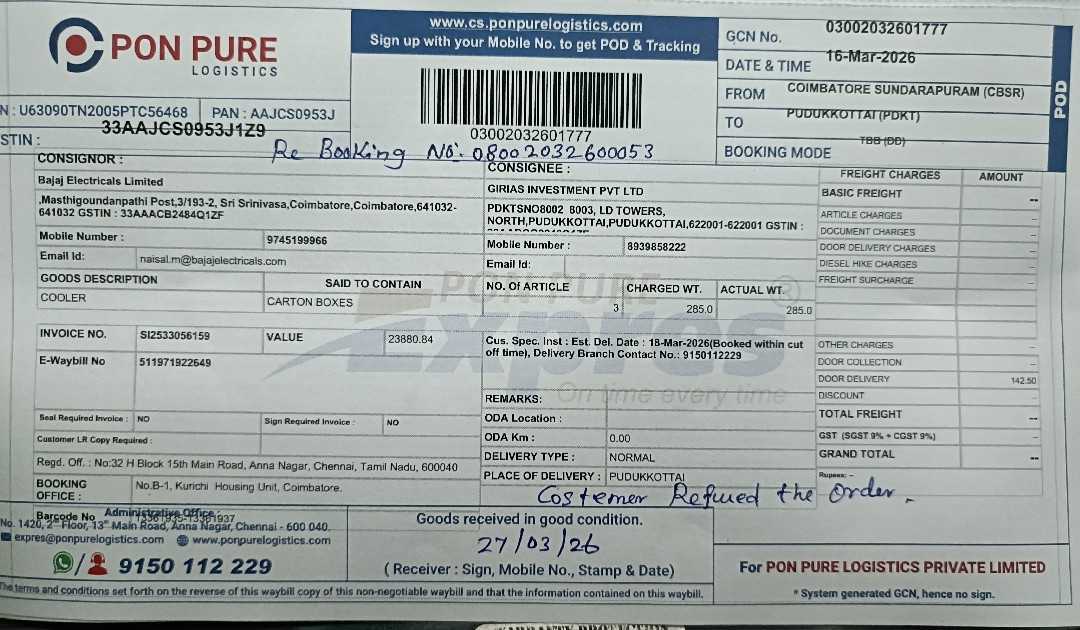 PON PURE
LOGISTICS
www.cs.ponpurelogistics.com
Sign up with your Mobile No. to get POD & Tracking
03002032601777
GCN No. 03002032601777
DATE & TIME 16-Mar-2026
FROM COIMBATORE SUNDARAPURAM (CBSR)
TO PUDUKKOTTAI (PDKT)
BOOKING MODE TBB (DD)
POD
N : U63090TN2005PTC56468 PAN : AAJCS0953J
STIN : 33AAJCS0953J1Z9
Re Booking No: 08002032600053
CONSIGNOR :
Bajaj Electricals Limited
,Masthigoundanpathi Post,3/193-2, Sri Srinivasa,Coimbatore,Coimbatore,641032-
641032 GSTIN : 33AAACB2484Q1ZF
Mobile Number : 9745199966
Email Id: naisal.m@bajajelectricals.com
GOODS DESCRIPTION SAID TO CONTAIN
COOLER CARTON BOXES
INVOICE NO. SI2533056159 VALUE 23880.84
E-Waybill No 511971922649
Seal Required Invoice : NO Sign Required Invoice : NO
Customer LR Copy Required :
Regd. Off. : No:32 H Block 15th Main Road, Anna Nagar, Chennai, Tamil Nadu, 600040
BOOKING OFFICE : No.B-1, Kurichi Housing Unit, Coimbatore.
CONSIGNEE :
GIRIAS INVESTMENT PVT LTD
PDKTSNO8002 8003, LD TOWERS,
NORTH,PUDUKKOTTAI,PUDUKKOTTAI,622001-622001 GSTIN :
Mobile Number : 8939858222
Email Id:
NO. Of ARTICLE CHARGED WT. ACTUAL WT.
3 285.0 285.0
PON PURE
Expres
®
On time every time
Cus. Spec. Inst : Est. Del. Date : 18-Mar-2026(Booked within cut
off time), Delivery Branch Contact No.: 9150112229
REMARKS:
ODA Location :
ODA Km : 0.00
DELIVERY TYPE : NORMAL
PLACE OF DELIVERY : PUDUKKOTTAI
Costemer Refused the Order.
FREIGHT CHARGES AMOUNT
BASIC FREIGHT --
ARTICLE CHARGES -
DOCUMENT CHARGES -
DOOR DELIVERY CHARGES -
DIESEL HIKE CHARGES -
FREIGHT SURCHARGE -
OTHER CHARGES -
DOOR COLLECTION -
DOOR DELIVERY 142.50
DISCOUNT -
TOTAL FREIGHT --
GST (SGST 9% + CGST 9%) -
GRAND TOTAL --
Rupees: --
Barcode No 13361935-13361937
Administrative Office :
No. 1420, 2nd Floor, 13th Main Road, Anna Nagar, Chennai - 600 040.
expres@ponpurelogistics.com www.ponpurelogistics.com
/ 9150 112 229
Goods received in good condition.
27/03/26
( Receiver : Sign, Mobile No., Stamp & Date)
For PON PURE LOGISTICS PRIVATE LIMITED
* System generated GCN, hence no sign.
The terms and conditions set forth on the reverse of this waybill copy of this non-negotiable waybill and that the information contained on this waybill.